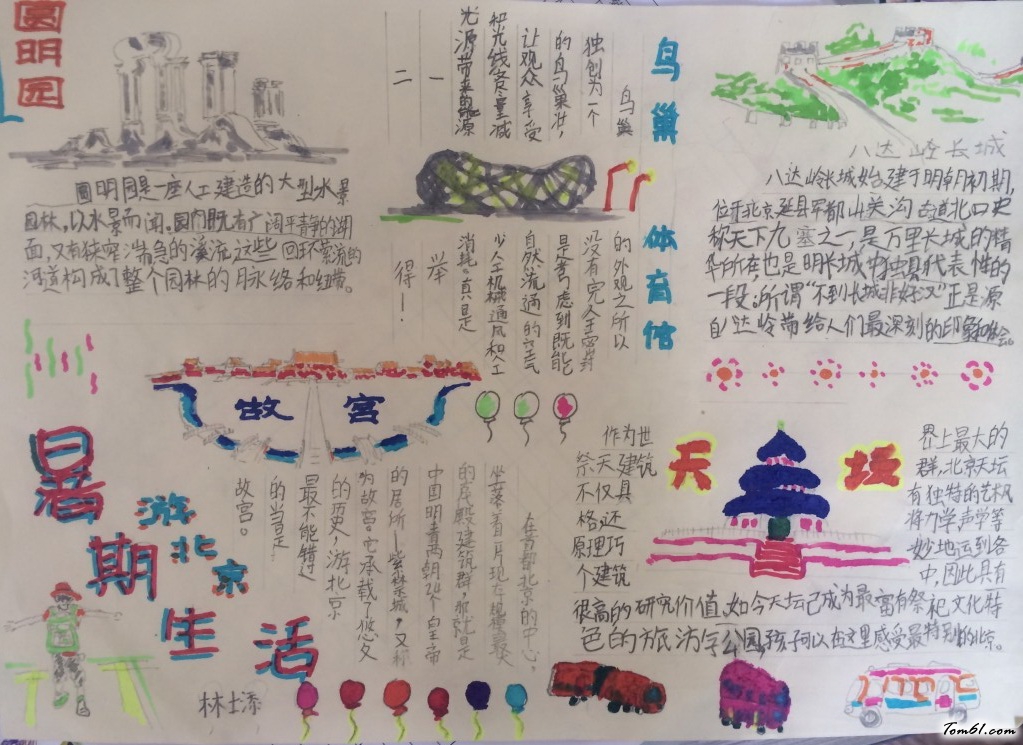 圆明园
圆明园是一座人工建造的大型水景
园林,以水景而闻。园内既有广阔平静的湖
面,又有狭窄湍急的溪流,这些回环萦流的
河道构成了整个园林的脉络和纽带。
鸟巢 体育馆
鸟巢
独创为一个
的鸟巢壮,
让观众享受
和光线尽量减
光源带来的能源
一
二
的外观之所以
没有完全密封
是考虑到既能
自然流通的空气
少人工机械通风和人工
消耗。真是
举
得!
八达岭长城
八达岭长城始建于明朝初期,
位于北京延县军都山关沟古道北口史
称天下九塞之一,是万里长城的精
华所在也是明长城中独具代表性的
一段,所谓“不到长城非好汉”正是源
自八达岭带给人们最深刻的印象和
故宫
在首都北京的中心,
坐落着
的居殿建筑群,那就是
中国明青两朝24个皇帝
的居所—紫禁城,又称
为故宫。它承载了悠久
的历史,游北京
最不能错过
的当是
故宫。
天坛
作为世
祭天建筑
不仅具
格,还
原理巧
个建筑
界上最大的
群,北京天坛
有独特的艺术风
将力学声学等
妙地运到各
中,因此具有
很高的研究价值,如今天坛已成为最富有祭祀文化特
色的旅游公园,孩子可以在这里感受最特别的北京。
暑期生活
游北京
林土添
Tom61.com